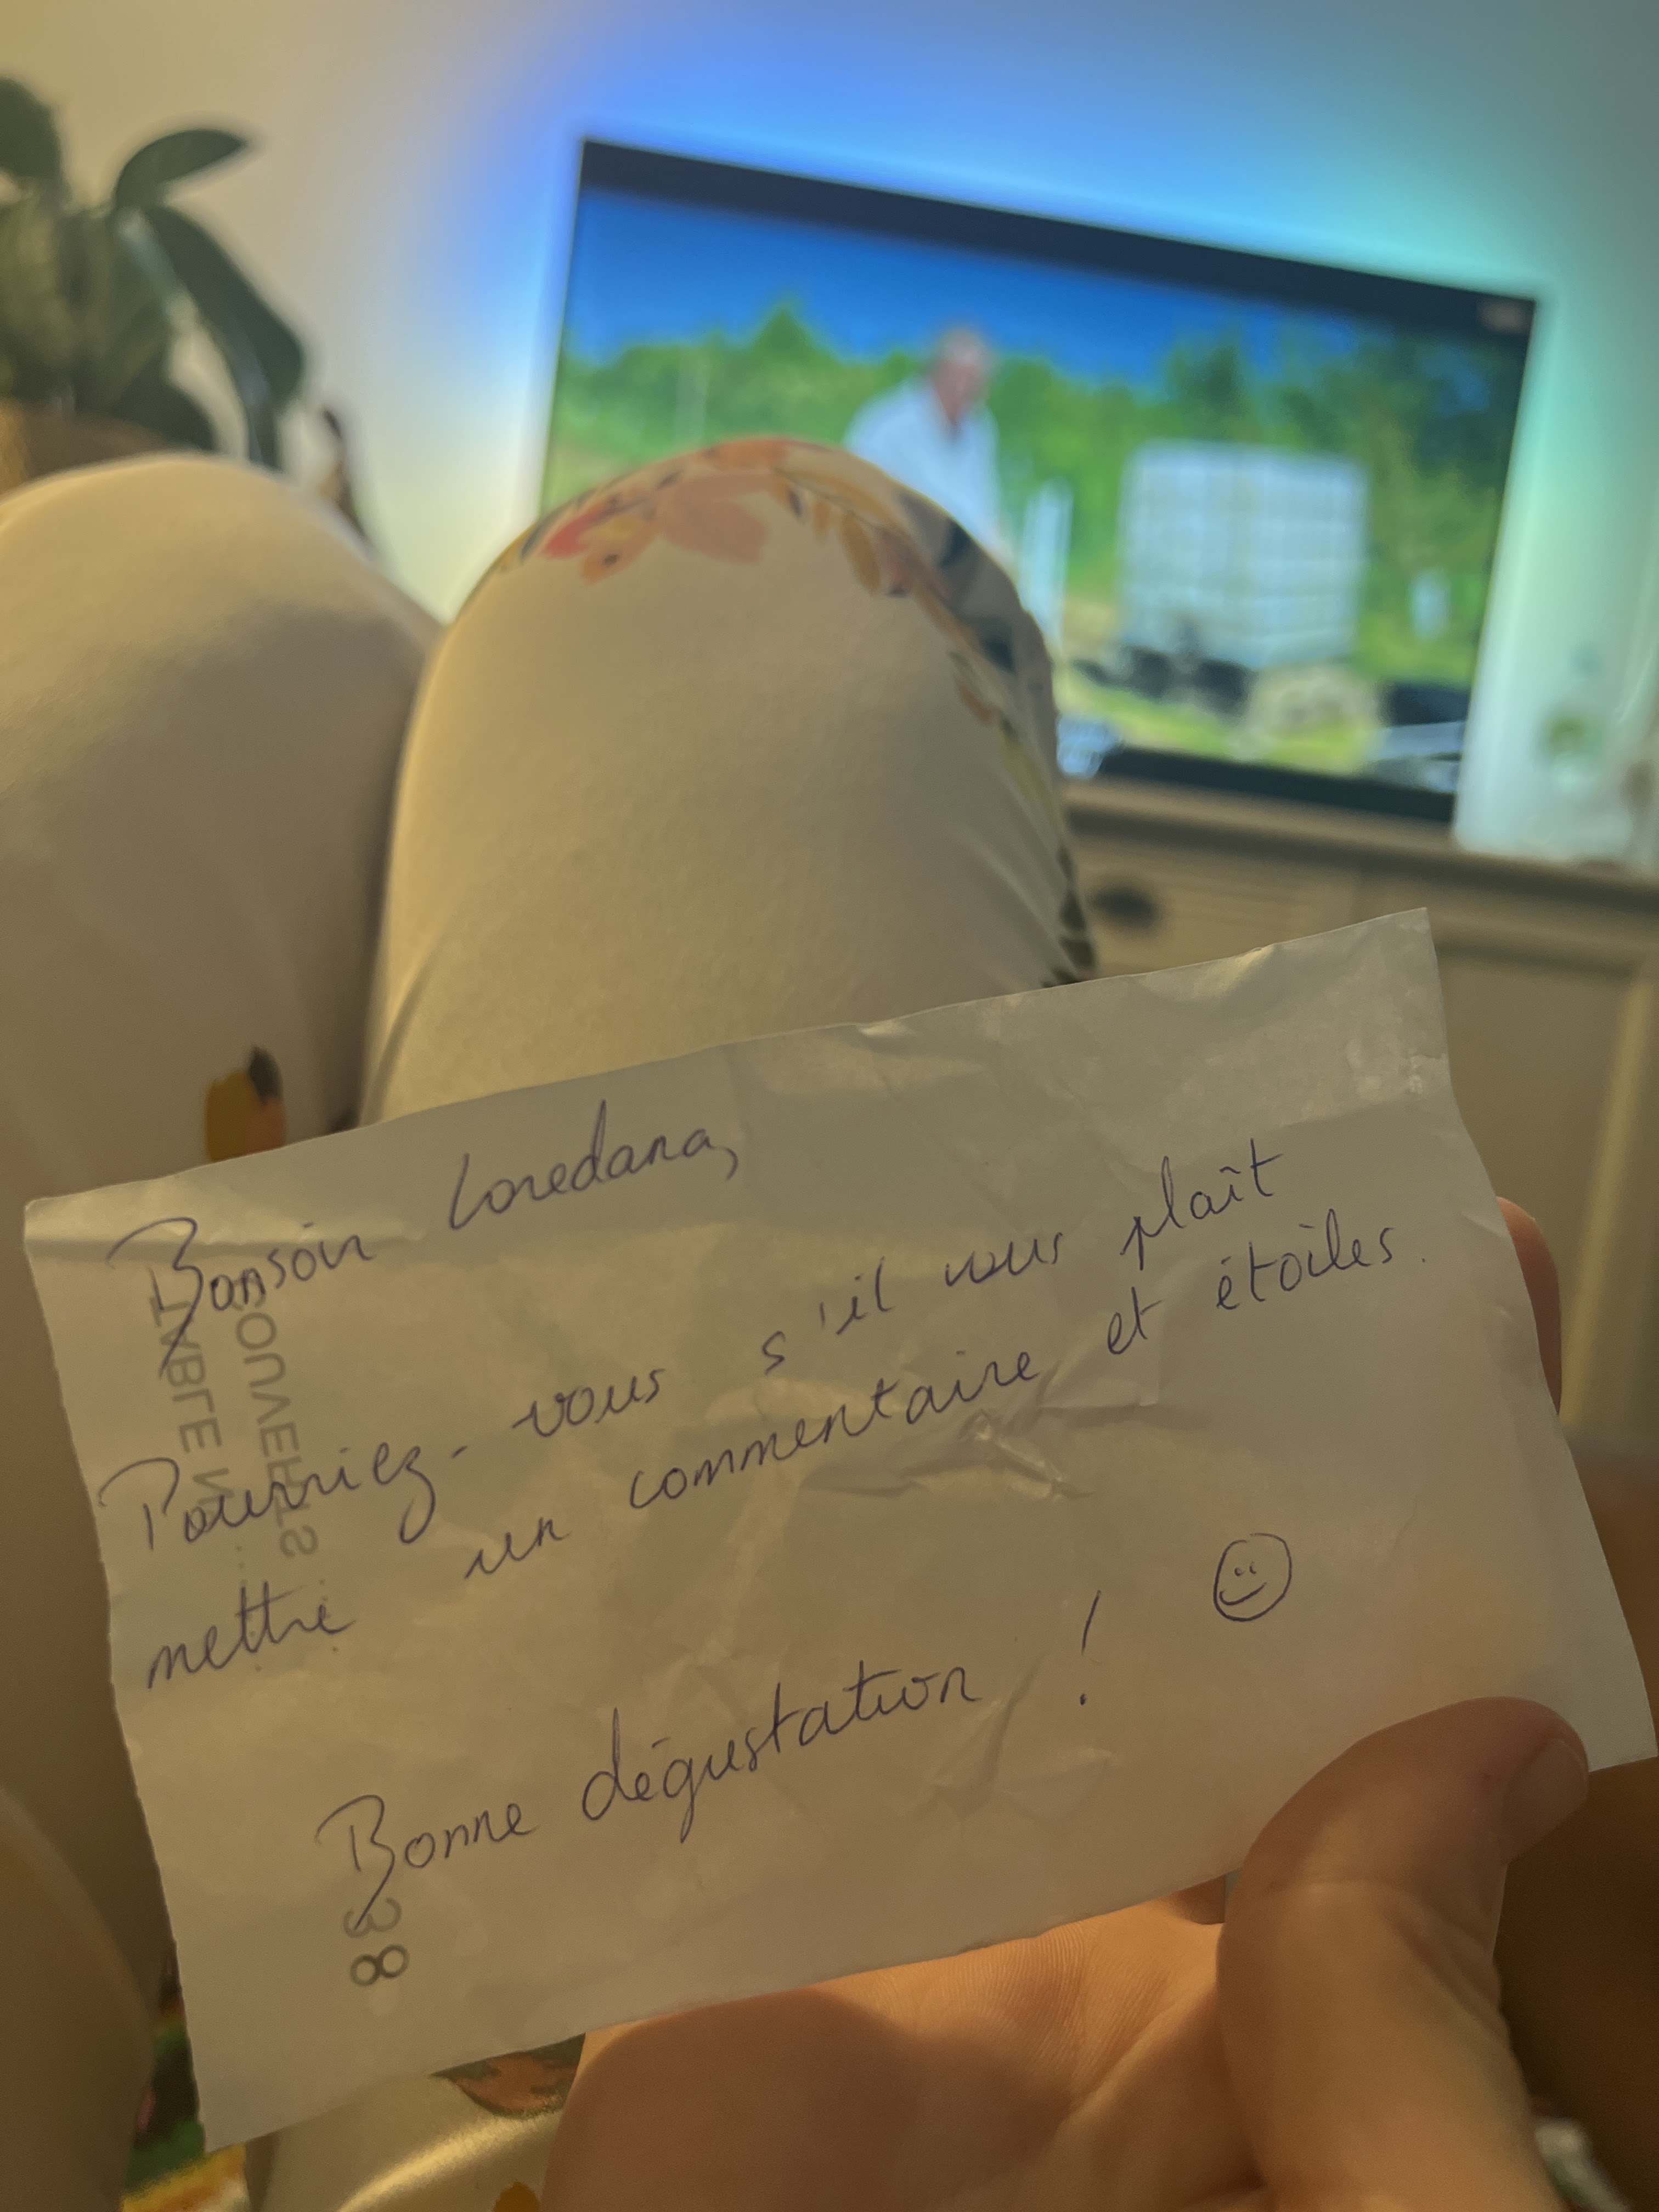 Bonsoir Loredana,
Pourriez-vous s'il vous plaît
mettre un commentaire et étoiles.
Bonne dégustation !
TABLE N
COUVERTS
38